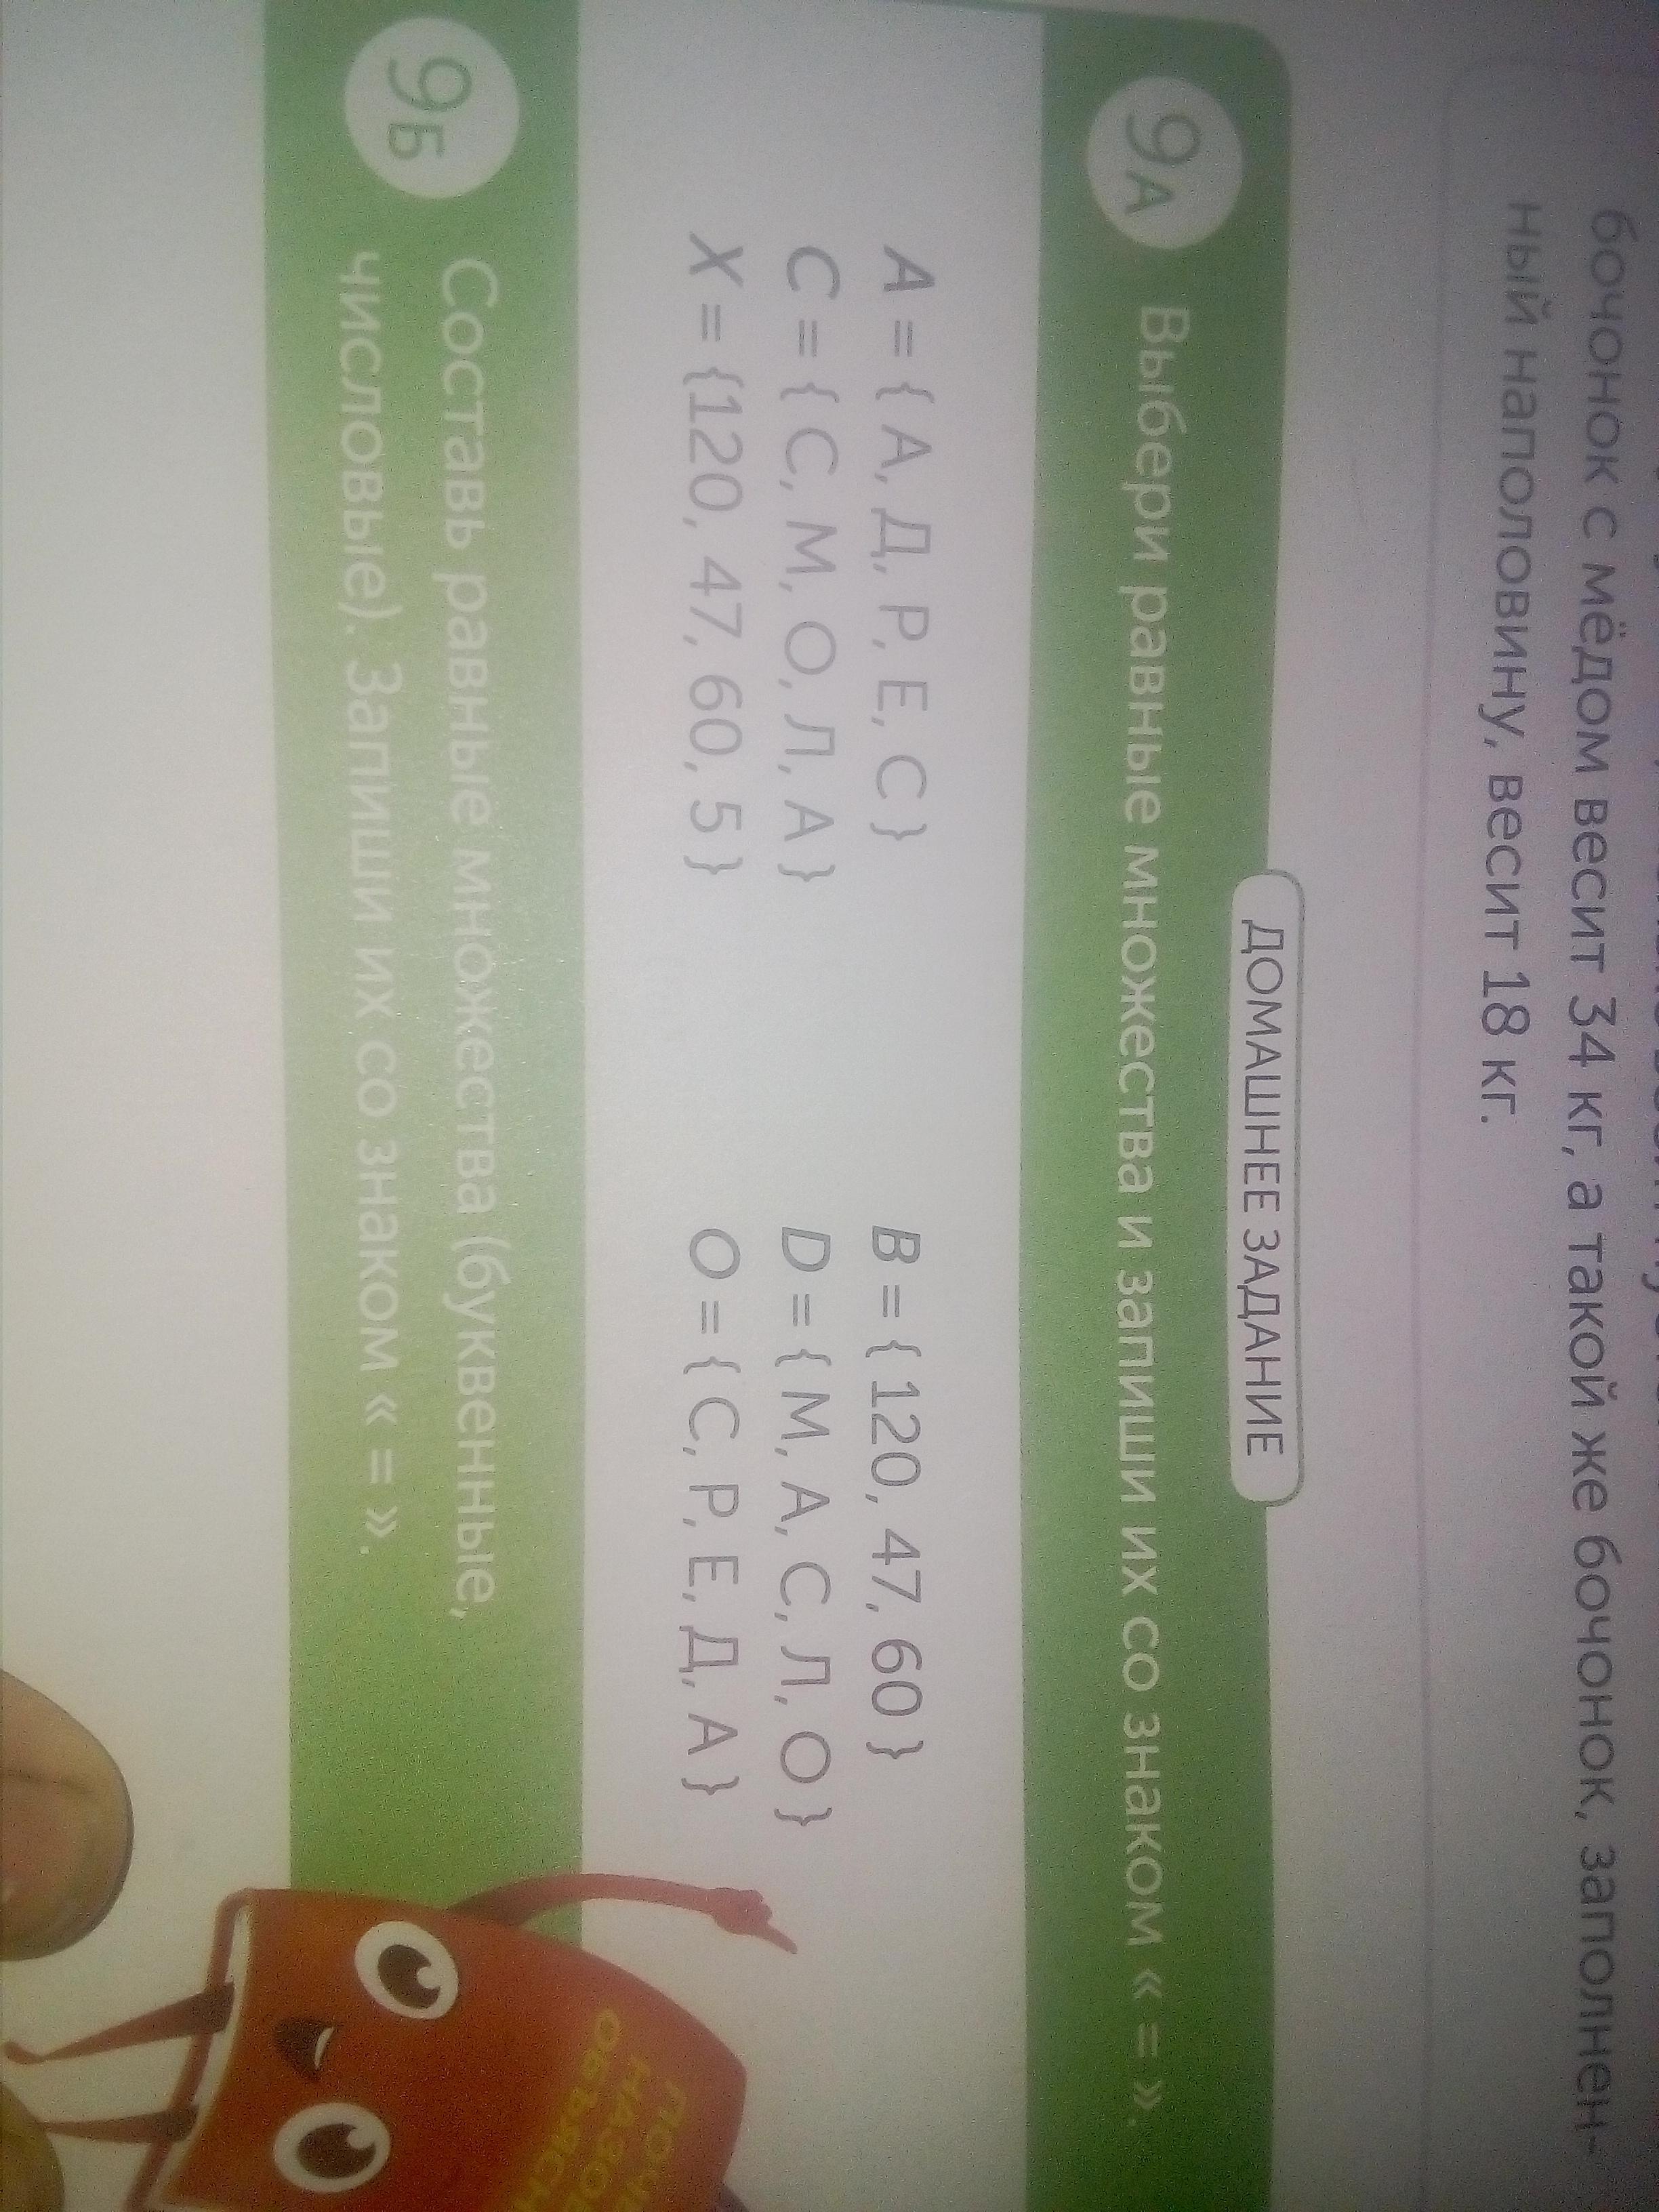 бочонок с мёдом весит 34 кг, а такой же бочонок, заполнен-
ный наполовину, весит 18 кг.
ДОМАШНЕЕ ЗАДАНИЕ
9А Выбери равные множества и запиши их со знаком « = ».
A = { А, Д, Р, Е, С } B = { 120, 47, 60 }
C = { С, М, О, Л, А } D = { М, А, С, Л, О }
X = {120, 47, 60, 5 } O = { С, Р, Е, Д, А }
9Б Составь равные множества (буквенные,
числовые). Запиши их со знаком « = ».